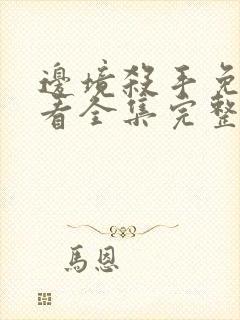 邊境殺手免
看全集完整
馬恩